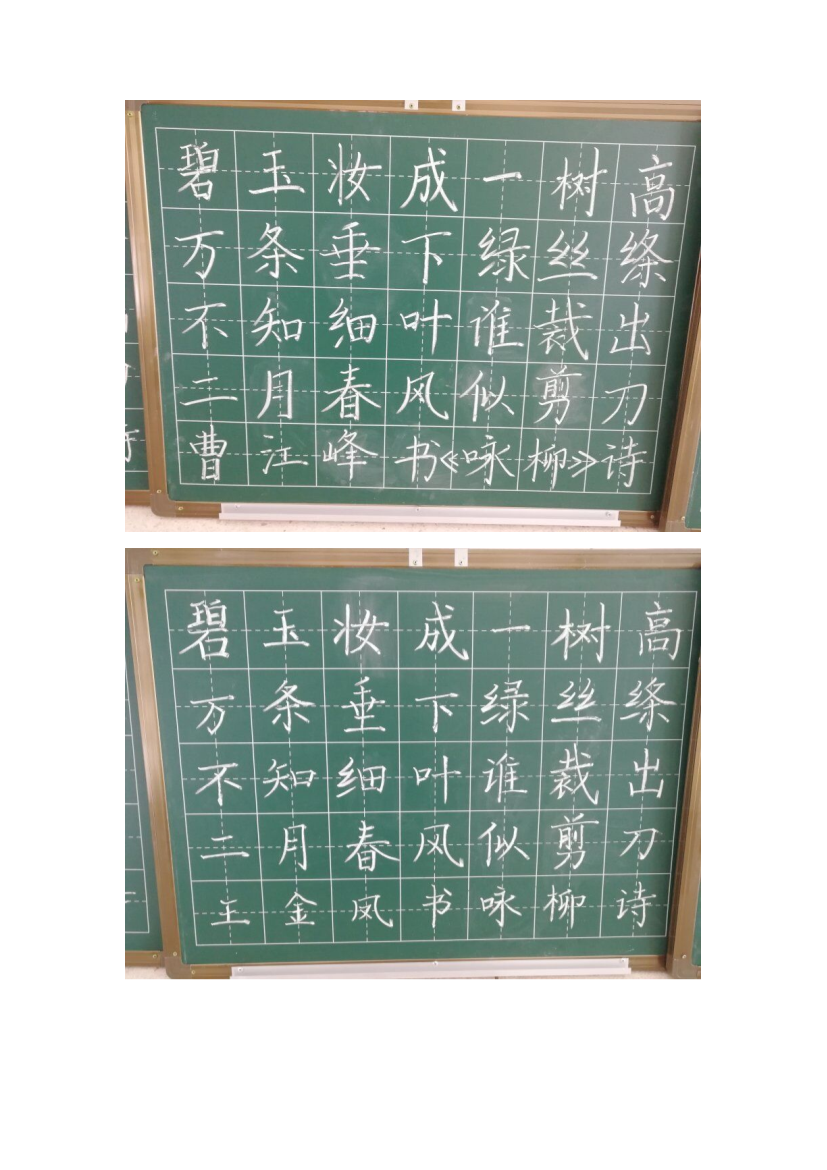 碧玉妆成一树高
万条垂下绿丝绦
不知细叶谁裁出
二月春风似剪刀
曹江峰书《咏柳》诗
碧玉妆成一树高
万条垂下绿丝绦
不知细叶谁裁出
二月春风似剪刀
王金凤书咏柳诗